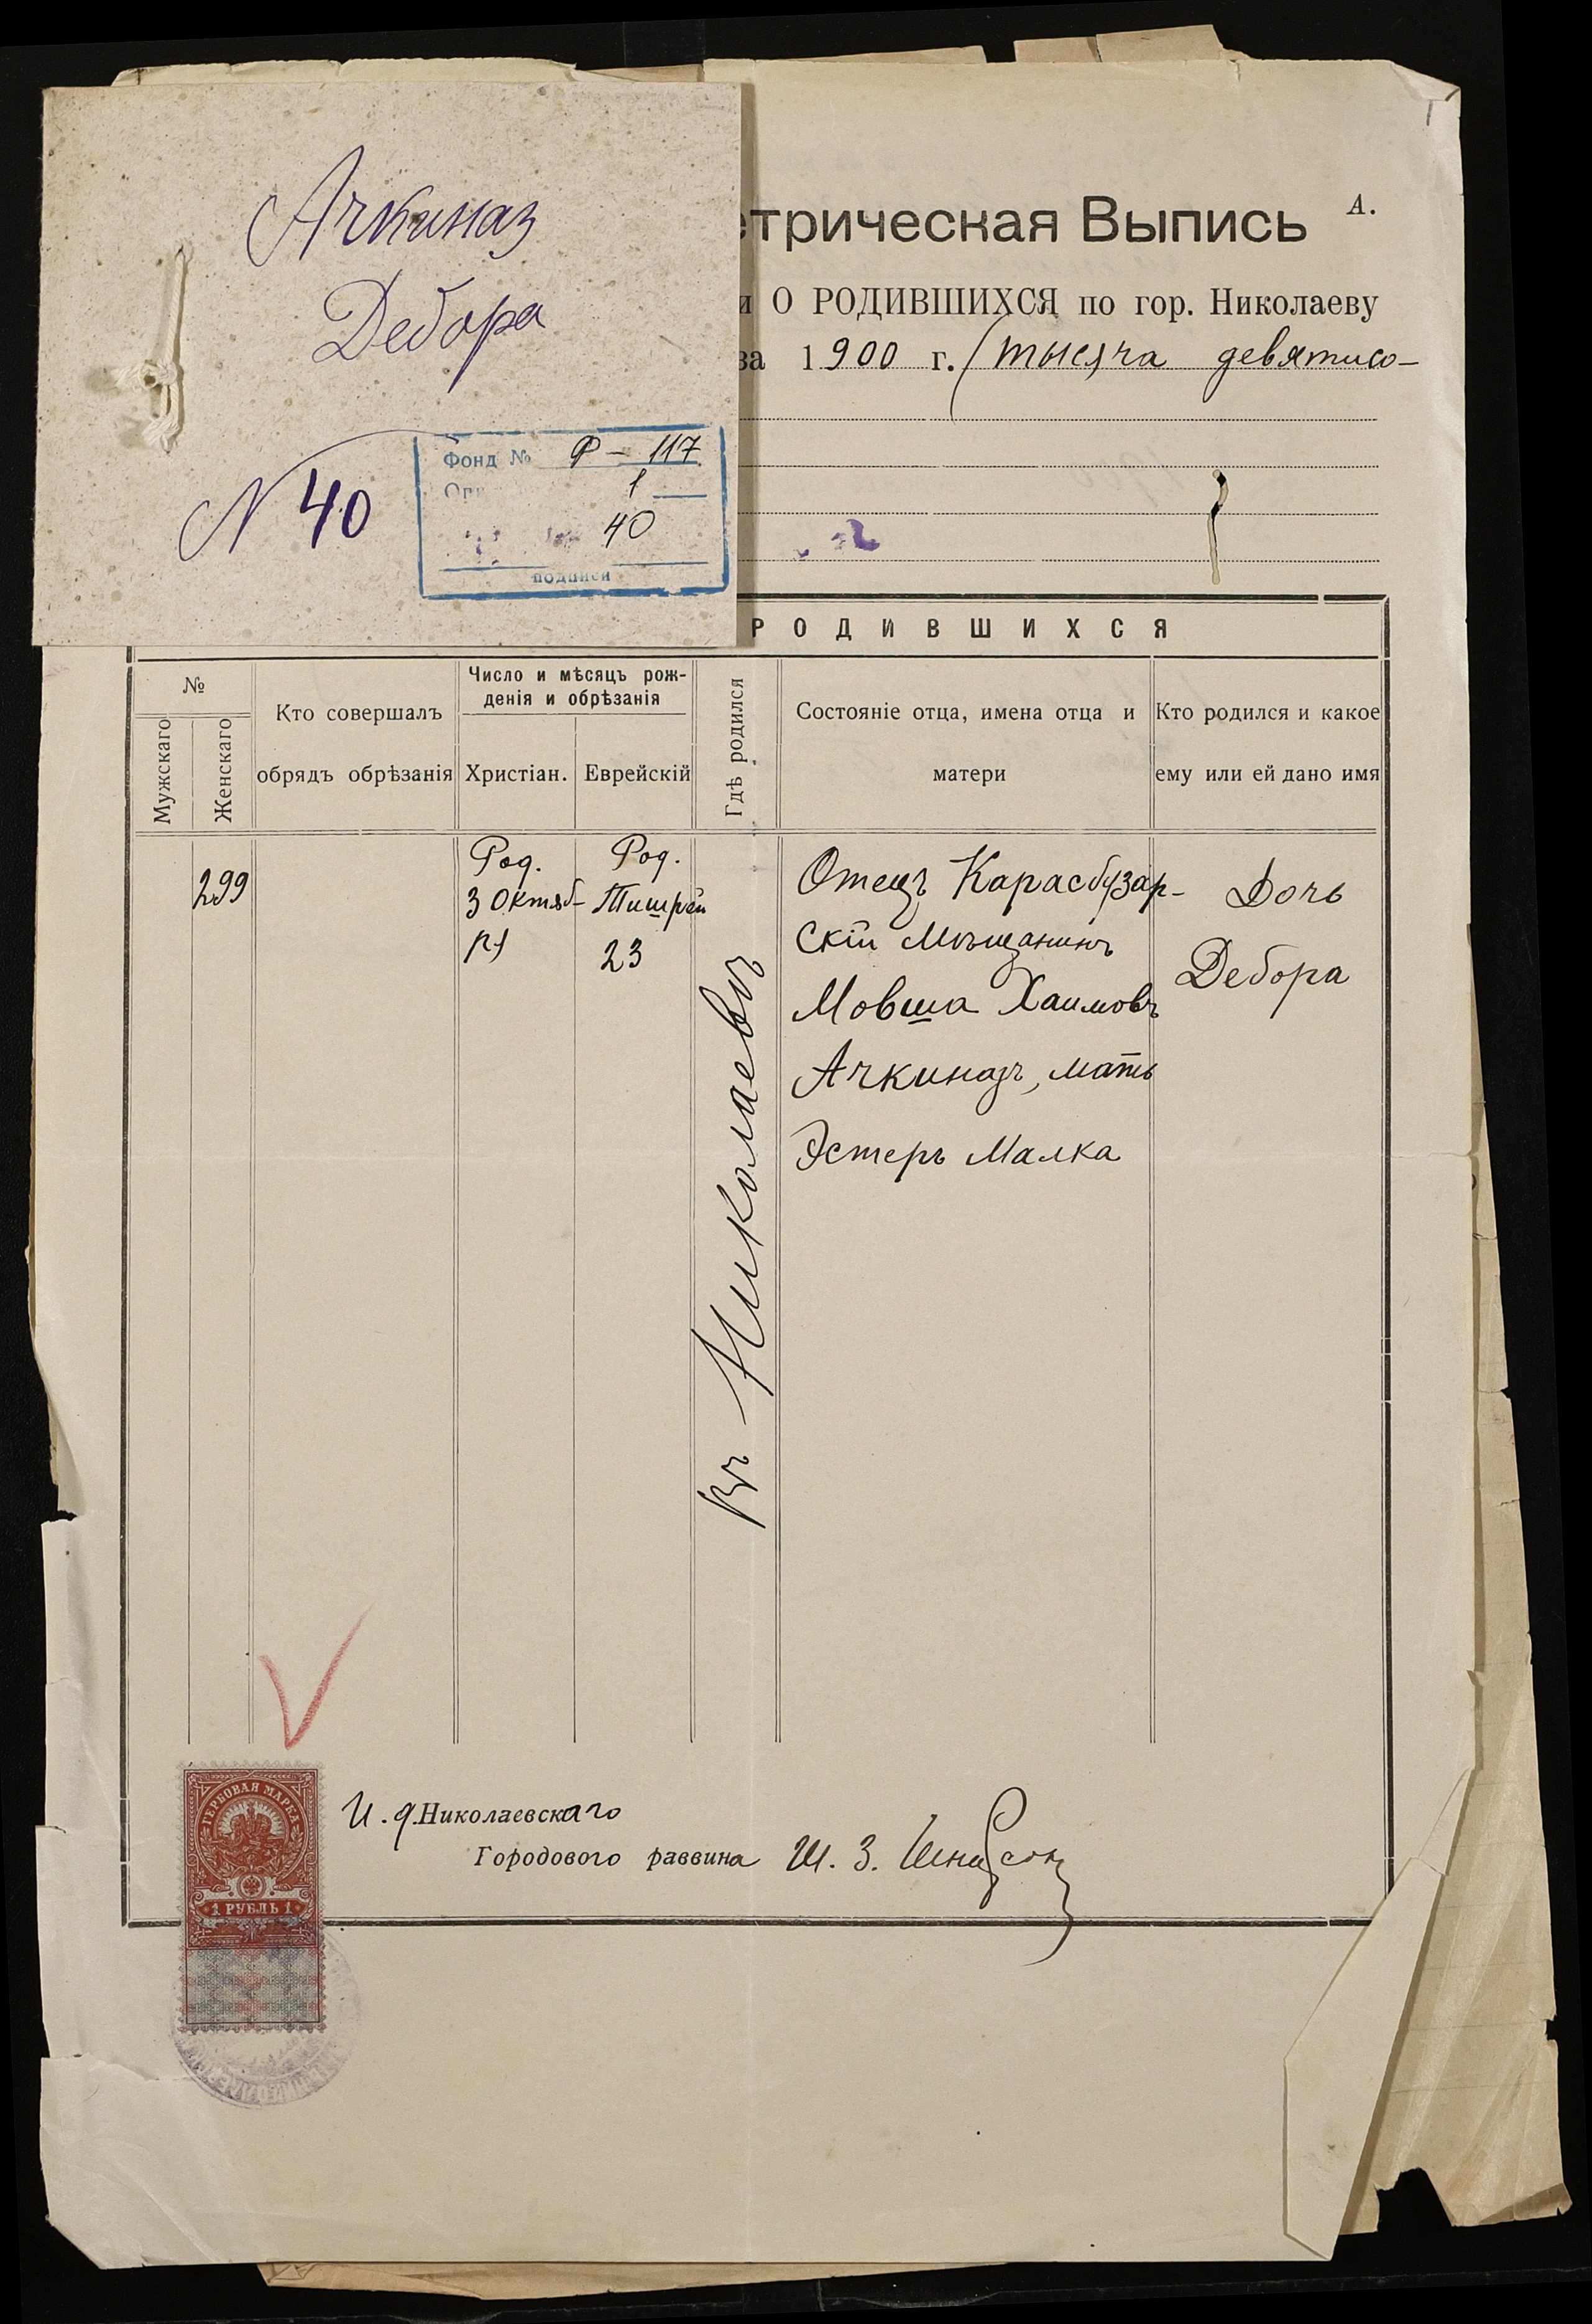 Ачкиназ
Дебора
N 40
Фонд № Р – 117
1
40
подписи
А.
етрическая Выпись
и О РОДИВШИХСЯ по гор. Николаеву
за 1900 г. (тысяча девятисо-
РОДИВШИХСЯ
№
Мужскаго
Женскаго
Кто совершалъ
обрядъ обрѣзанія
Число и мѣсяцъ рож-
денія и обрѣзанія
Христіан.
Еврейскій
Гдѣ родился
Состояніе отца, имена отца и
матери
Кто родился и какое
ему или ей дано имя
299
Род.
3 Октяб-
ря
Род.
Тишрей
23
въ Николаевѣ
Отецъ Карасбузар-
скій Мѣщанинъ
Мовша Хаимовъ
Ачкиназъ, мать
Эстеръ Малка
Дочь
Дебора
ГЕРБОВАЯ МАРКА
1 РУБЛЬ 1
И. д. Николаевскаго
Городового раввина Ш. З.